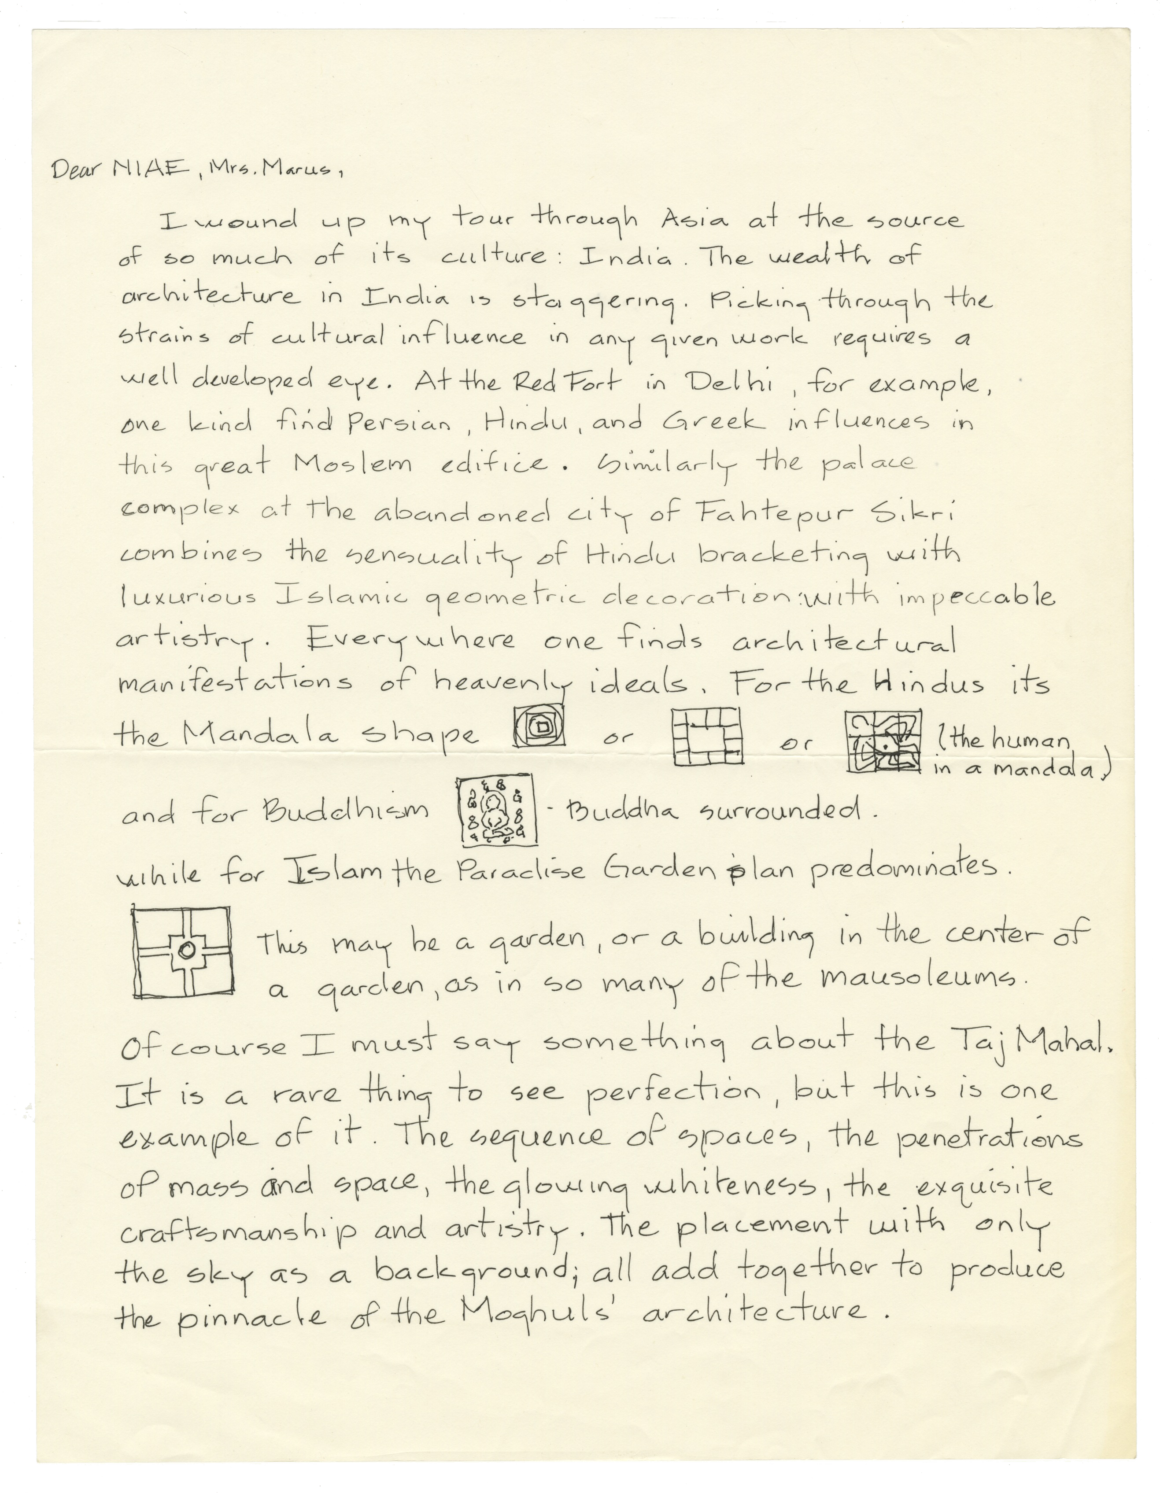 Dear NIAE, Mrs. Marus,
I wound up my tour through Asia at the source
of so much of its culture: India. The wealth of
architecture in India is staggering. Picking through the
strains of cultural influence in any given work requires a
well developed eye. At the Red Fort in Delhi, for example,
one kind find Persian, Hindu, and Greek influences in
this great Moslem edifice. Similarly the palace
complex at the abandoned city of Fahtepur Sikri
combines the sensuality of Hindu bracketing with
luxurious Islamic geometric decoration: with impeccable
artistry. Everywhere one finds architectural
manifestations of heavenly ideals. For the Hindus its
the Mandala shape or or (the human
in a mandala)
and for Buddhism - Buddha surrounded.
while for Islam the Paradise Garden plan predominates.
This may be a garden, or a building in the center of
a garden, as in so many of the mausoleums.
Of course I must say something about the Taj Mahal.
It is a rare thing to see perfection, but this is one
example of it. The sequence of spaces, the penetrations
of mass and space, the glowing whiteness, the exquisite
craftsmanship and artistry. The placement with only
the sky as a background; all add together to produce
the pinnacle of the Moghuls' architecture.